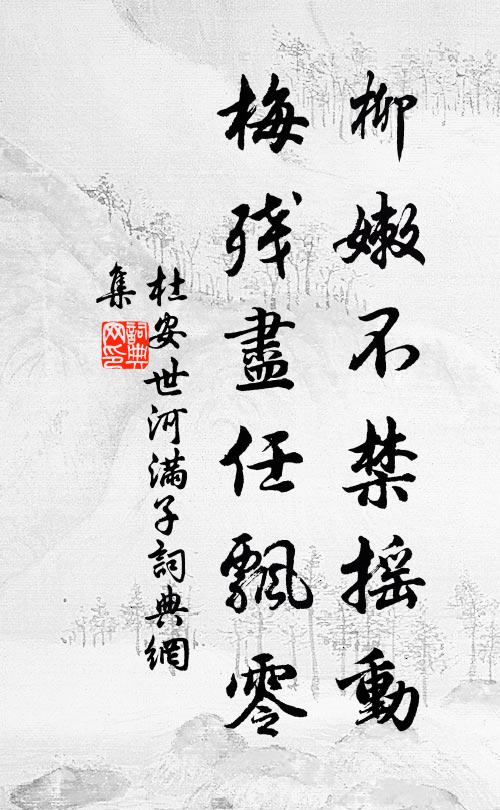 柳嫩不禁摇動
梅残盡任飄零
杜安世河滿子詞典網
集
詞典
网印